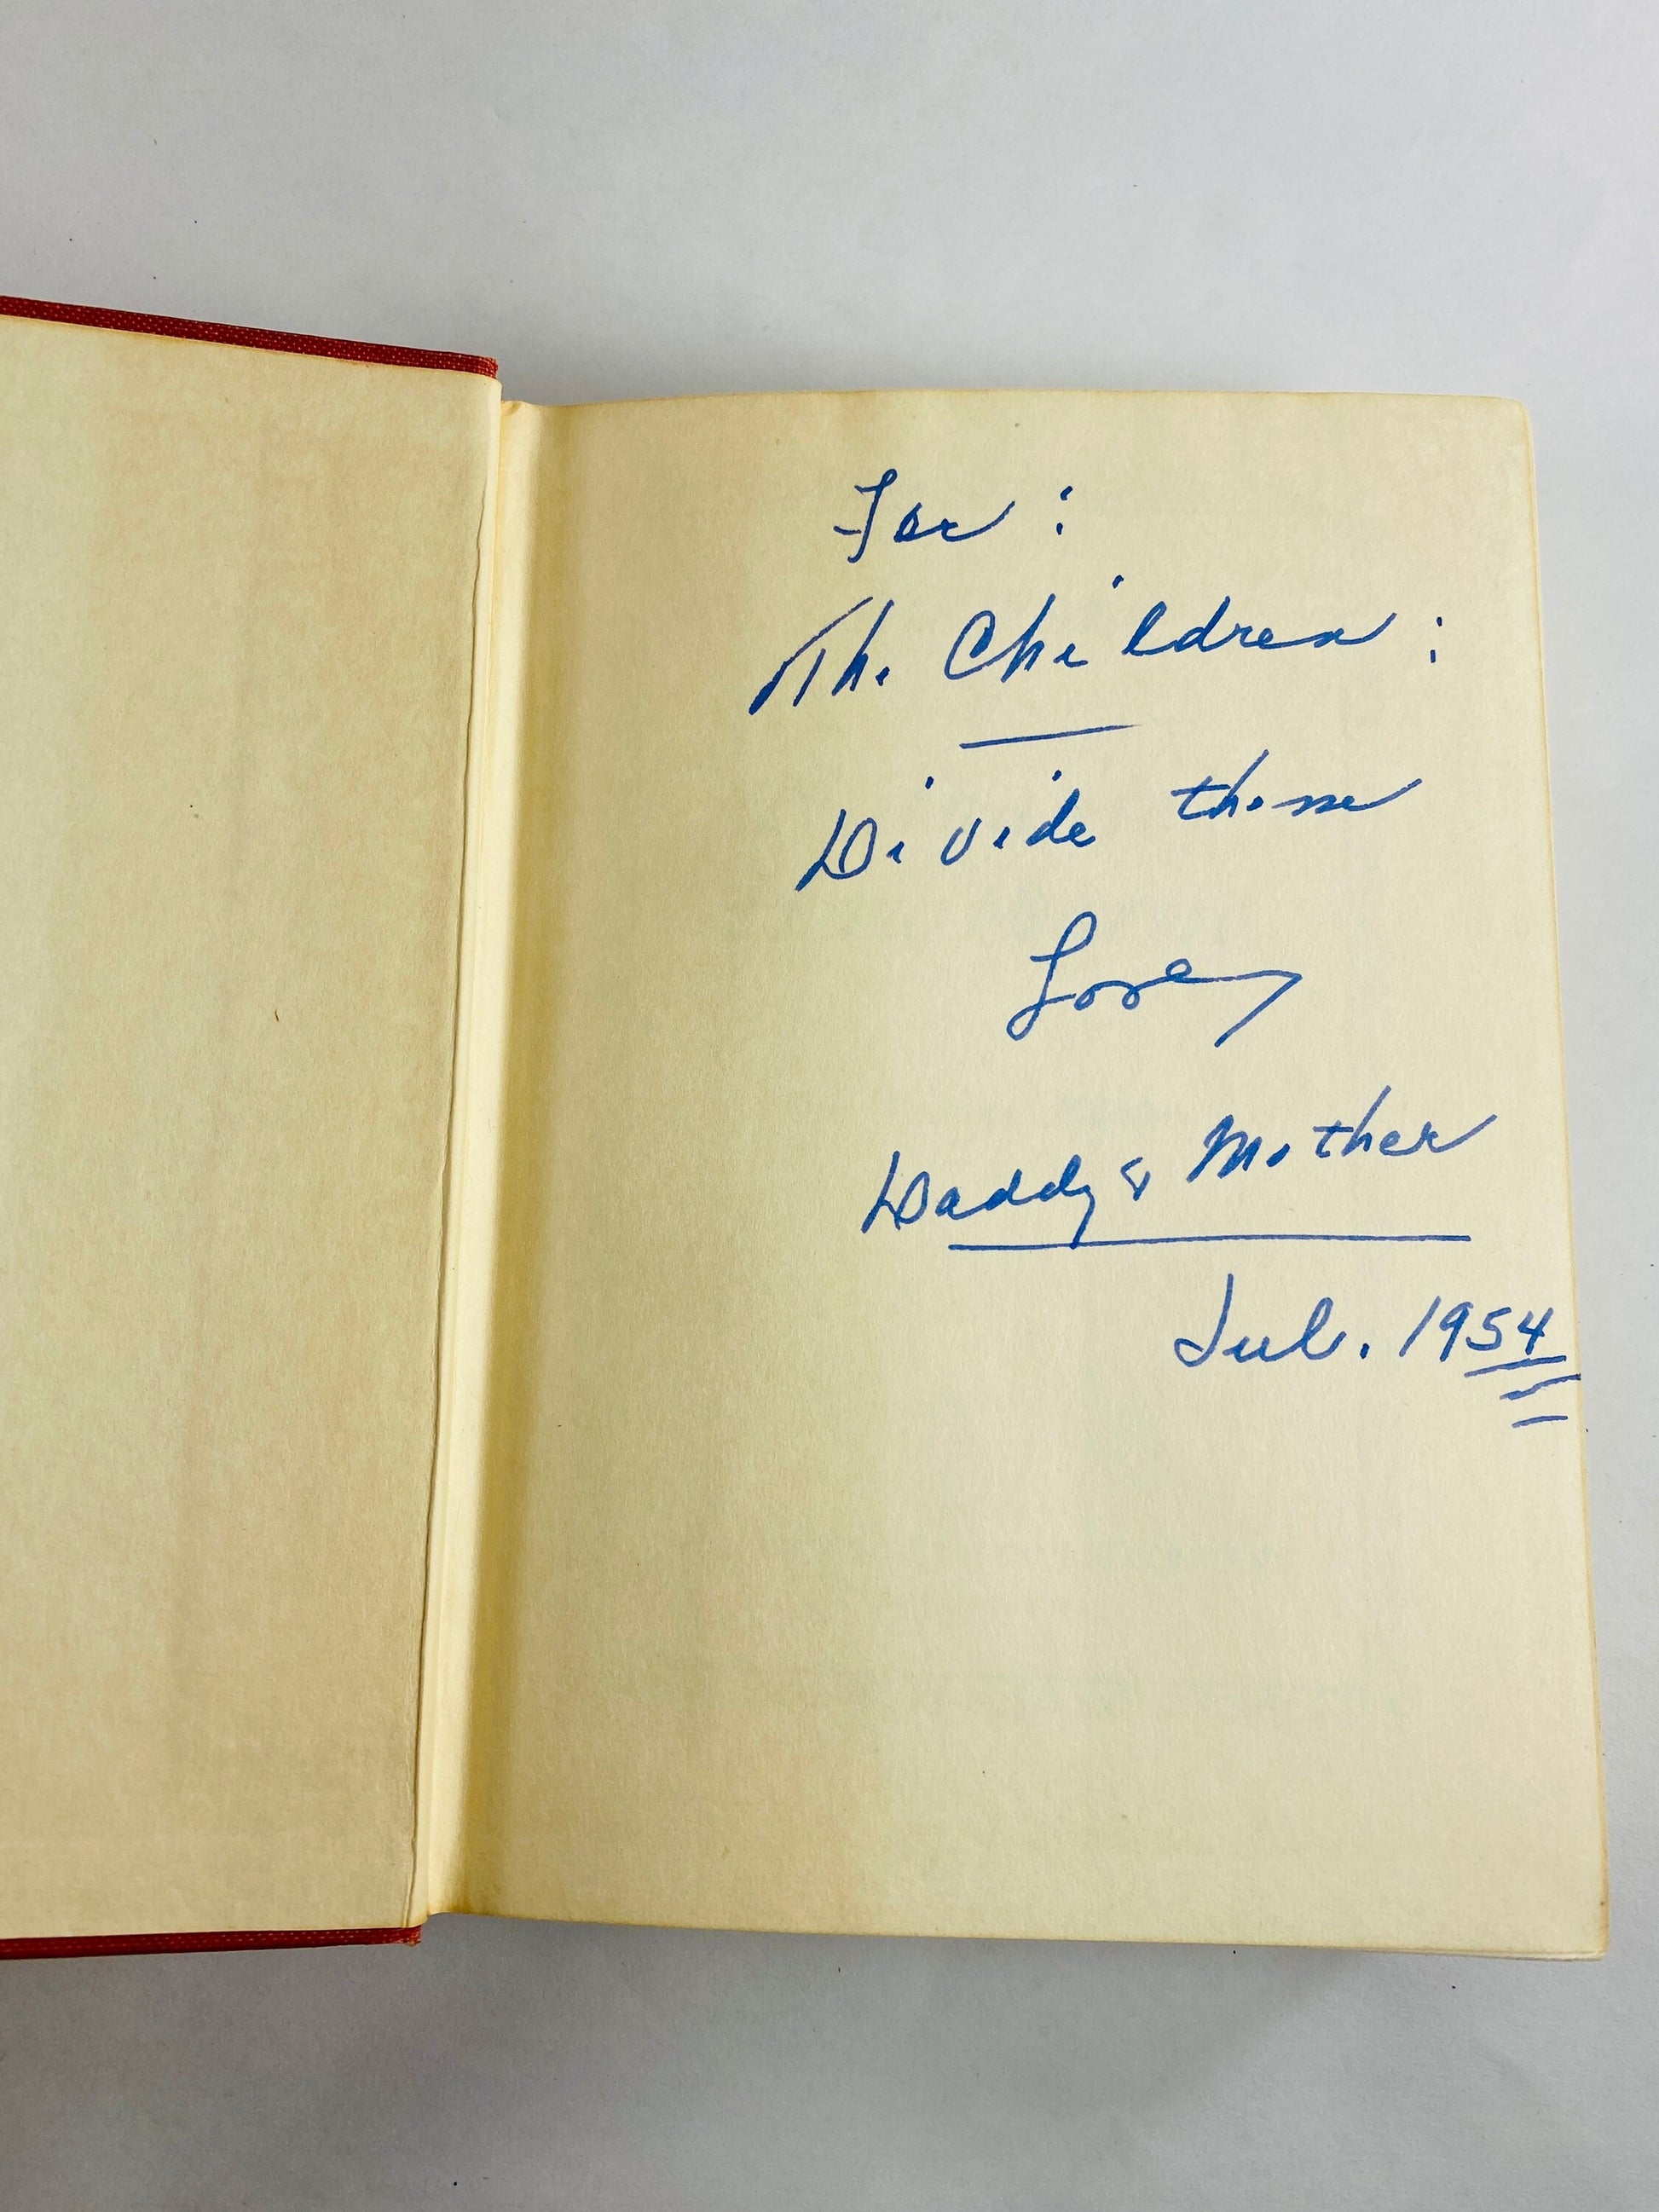 For:
The Children:
Divide them
Love,
Daddy & Mother
Jul. 1954